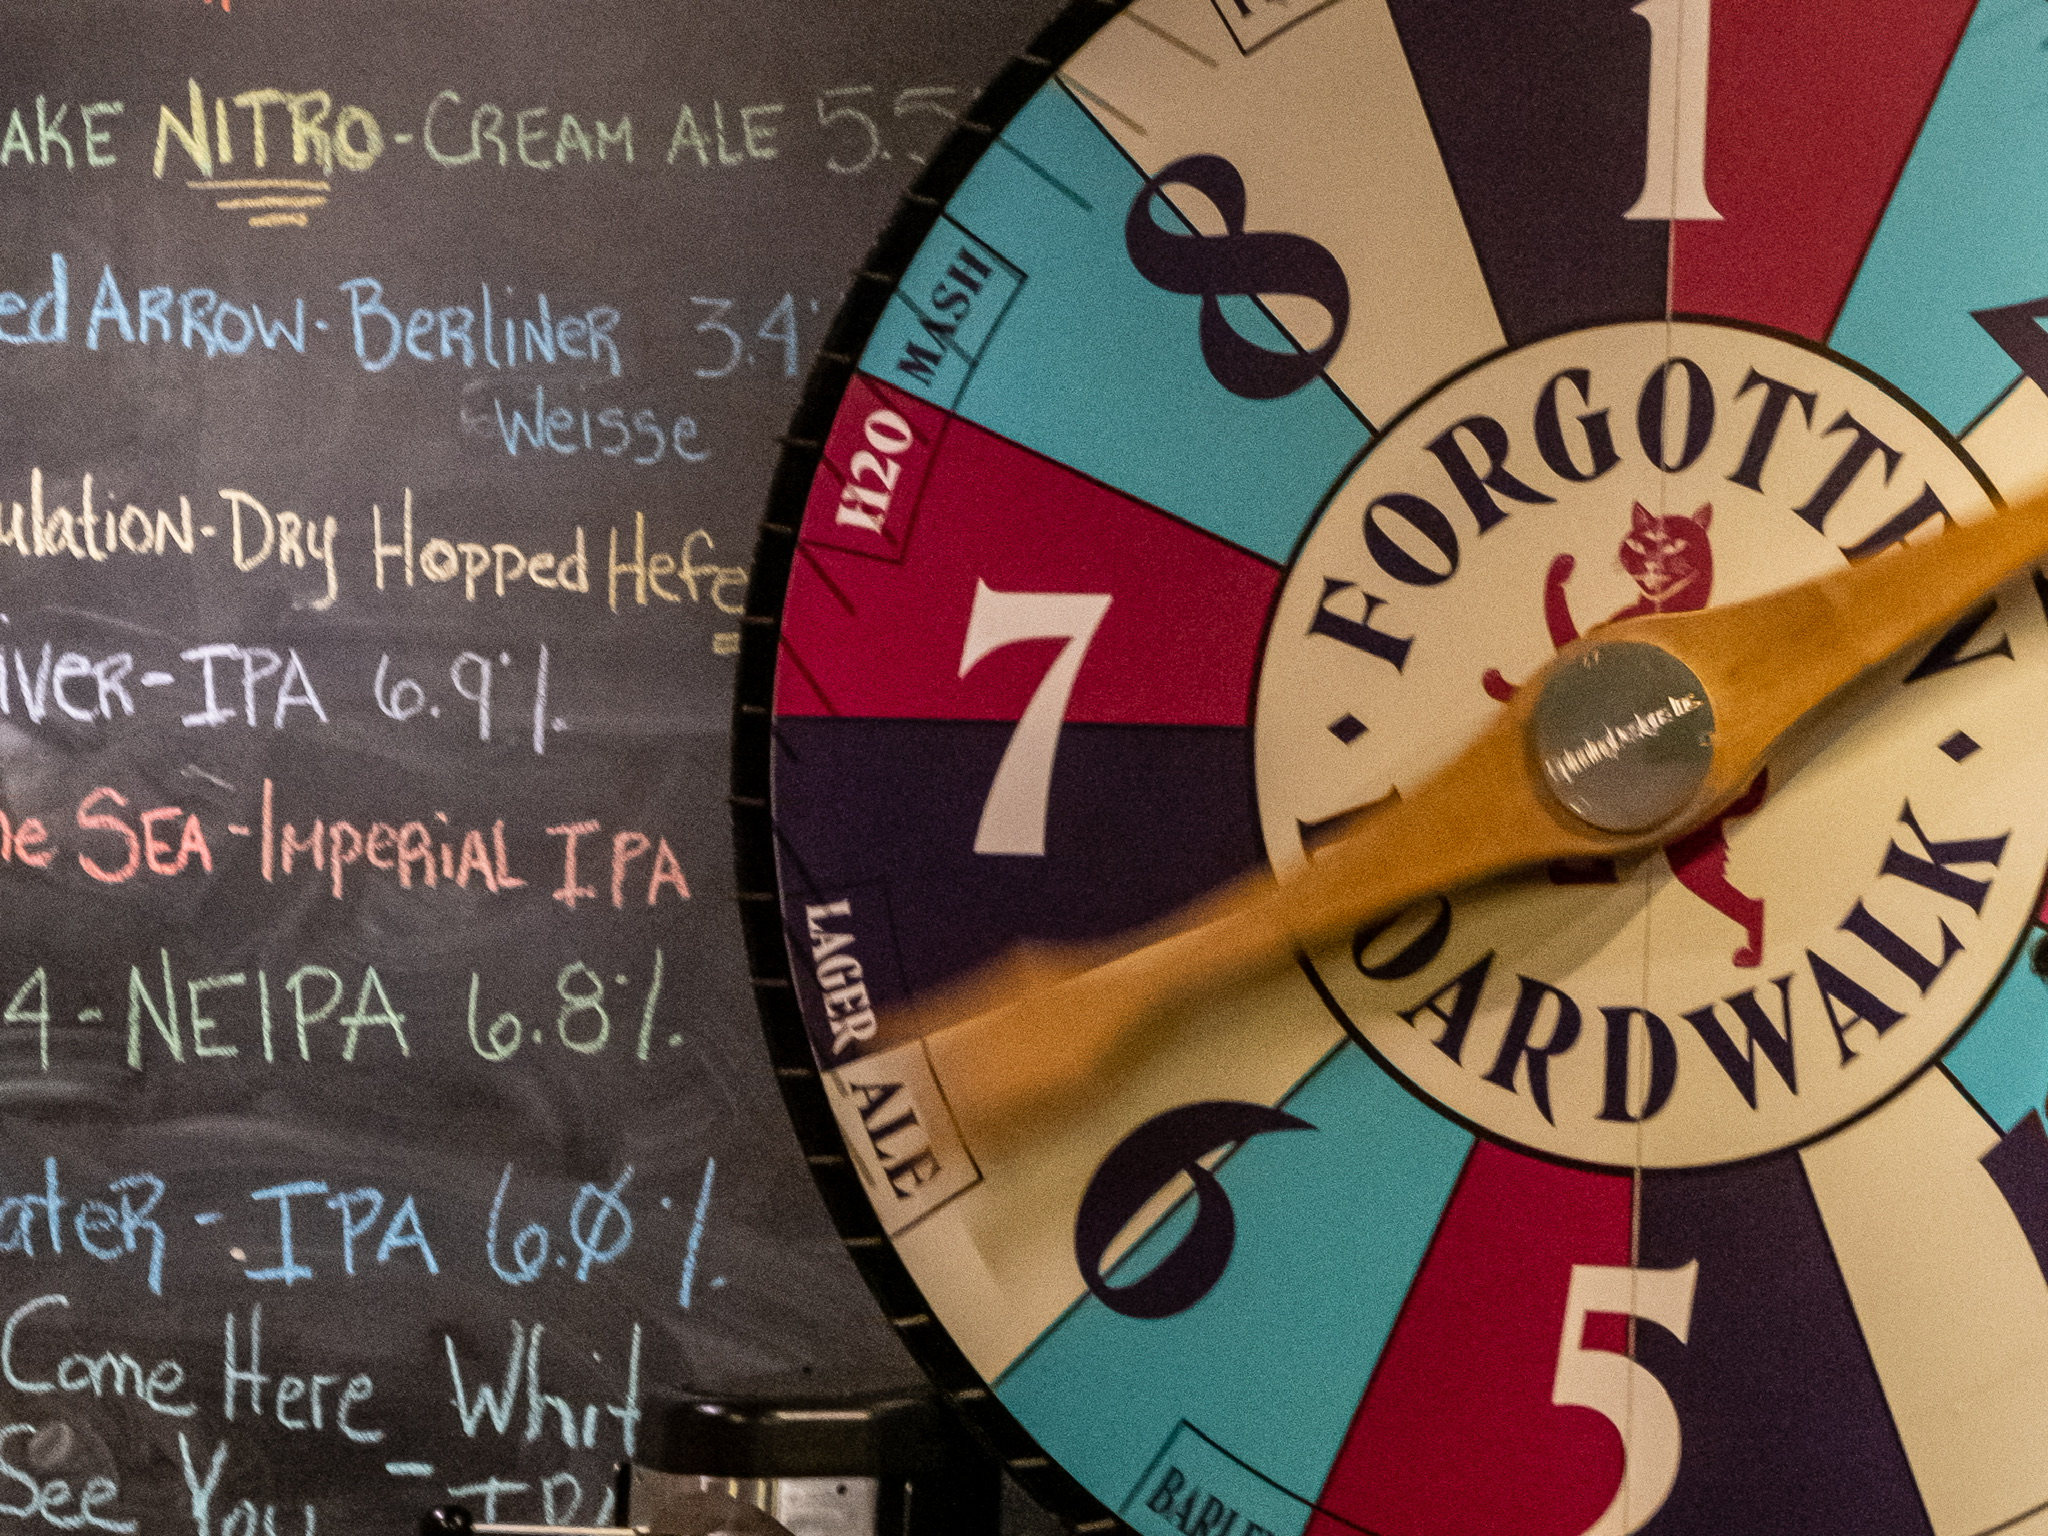 AKE NITRO - CREAM ALE 5.5
ed ARROW - Berliner 3.4
Weisse
ulation - Dry Hopped Hefe
iver - IPA 6.9%
he SEA - Imperial IPA
4 - NEIPA 6.8%
ater - IPA 6.0%
Come Here Whit
See You - IPA
1
8
7
6
5
MASH
H2O
LAGER
ALE
BARLEY
FORGOTTEN
BOARDWALK